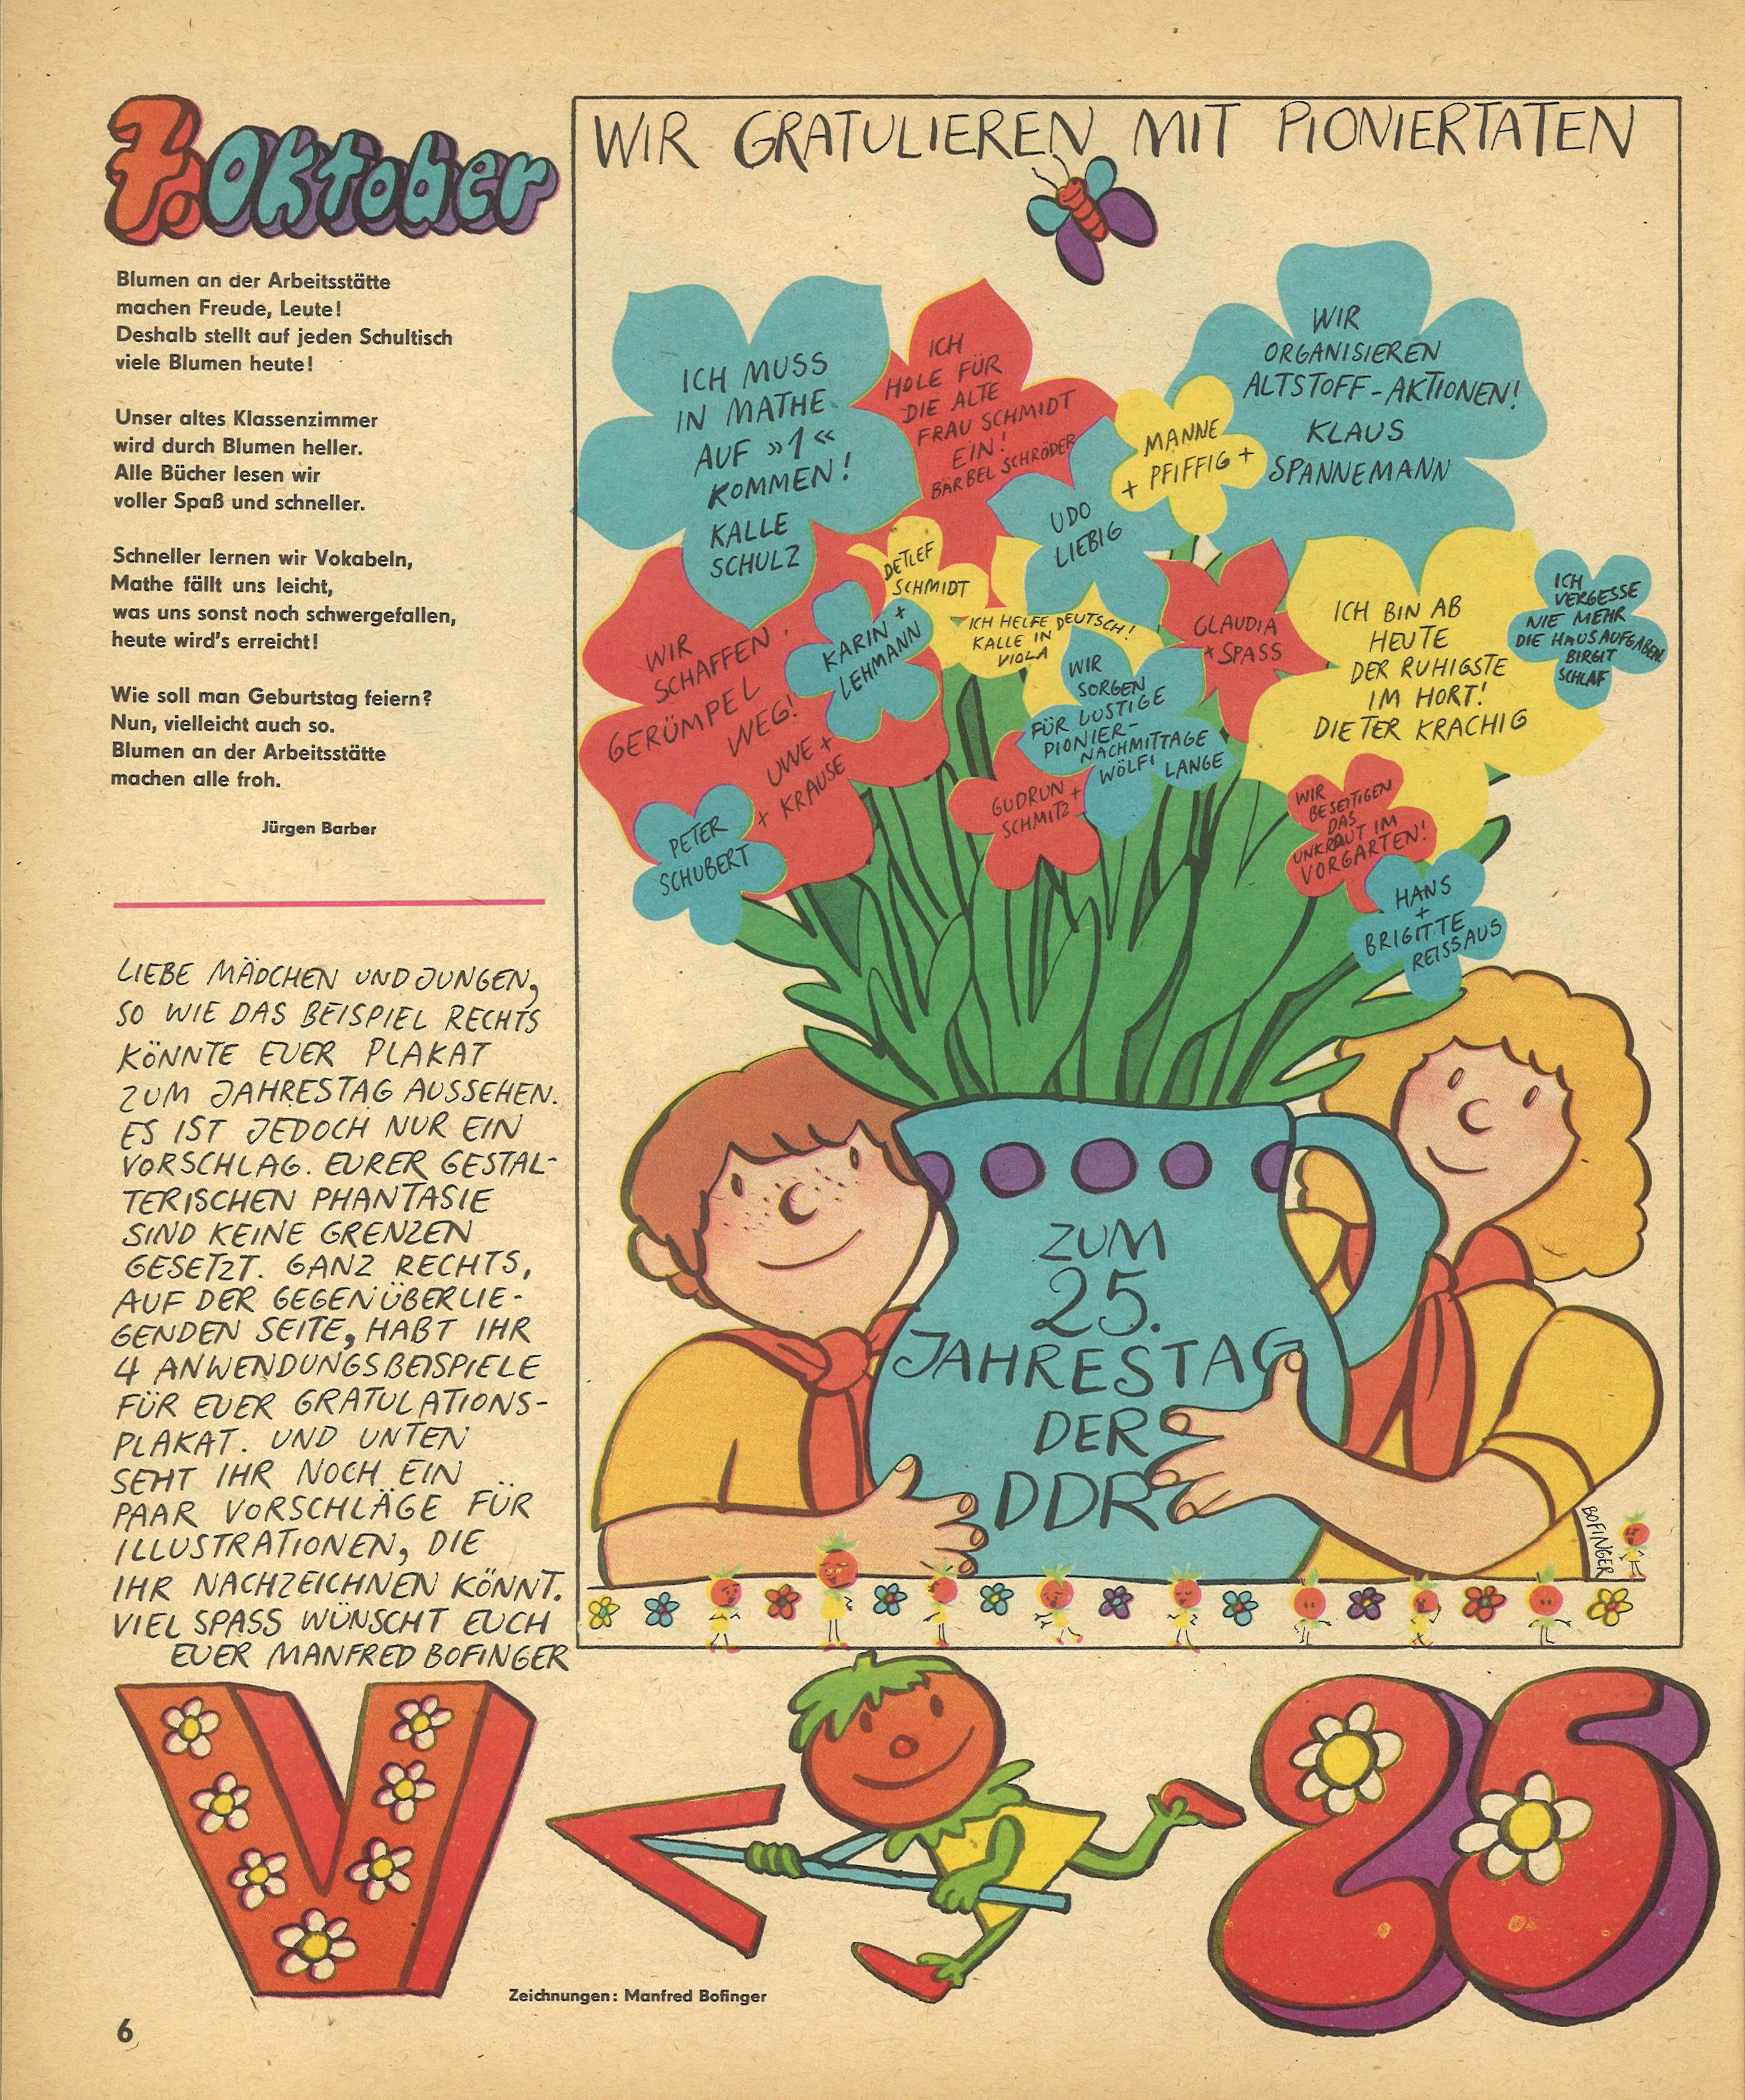 7. Oktober
Blumen an der Arbeitsstätte
machen Freude, Leute!
Deshalb stellt auf jeden Schultisch
viele Blumen heute!
Unser altes Klassenzimmer
wird durch Blumen heller.
Alle Bücher lesen wir
voller Spaß und schneller.
Schneller lernen wir Vokabeln,
Mathe fällt uns leicht,
was uns sonst noch schwergefallen,
heute wird's erreicht!
Wie soll man Geburtstag feiern?
Nun, vielleicht auch so.
Blumen an der Arbeitsstätte
machen alle froh.
Jürgen Barber
LIEBE MÄDCHEN UND JUNGEN,
SO WIE DAS BEISPIEL RECHTS
KÖNNTE EUER PLAKAT
ZUM JAHRESTAG AUSSEHEN.
ES IST JEDOCH NUR EIN
VORSCHLAG. EURER GESTAL-
TERISCHEN PHANTASIE
SIND KEINE GRENZEN
GESETZT. GANZ RECHTS,
AUF DER GEGENÜBERLIE-
GENDEN SEITE, HABT IHR
4 ANWENDUNGSBEISPIELE
FÜR EUER GRATULATIONS-
PLAKAT. UND UNTEN
SEHT IHR NOCH EIN
PAAR VORSCHLÄGE FÜR
ILLUSTRATIONEN, DIE
IHR NACHZEICHNEN KÖNNT.
VIEL SPASS WÜNSCHT EUCH
EUER MANFRED BOFINGER
WIR GRATULIEREN MIT PIONIERTATEN
ICH MUSS
IN MATHE
AUF »1«
KOMMEN!
KALLE
SCHULZ
ICH
HOLE FÜR
DIE ALTE
FRAU SCHMIDT
EIN!
BÄRBEL SCHRÖDER
MANNE
+ PFIFFIG +
WIR
ORGANISIEREN
ALTSTOFF-AKTIONEN!
KLAUS
SPANNEMANN
UDO
LIEBIG
DETLEF
SCHMIDT
WIR
SCHAFFEN
GERÜMPEL
WEG!
UWE +
+ KRAUSE
KARIN +
LEHMANN
PETER
SCHUBERT
ICH HELFE DEUTSCH!
KALLE IN
VIOLA
CLAUDIA
+ SPASS
WIR
SORGEN
FÜR LUSTIGE
PIONIER-
NACHMITTAGE
WÖLFI LANGE
GUDRUN +
SCHMITZ
ICH BIN AB
HEUTE
DER RUHIGSTE
IM HORT!
DIETER KRACHIG
ICH
VERGESSE
NIE MEHR
DIE HAUSAUFGABEN
BIRGIT
SCHLAF
WIR
BESEITIGEN
DAS
UNKRAUT IM
VORGARTEN!
HANS
+
BRIGITTE
REISSAUS
ZUM
25.
JAHRESTAG
DER
DDR
BOFINGER
V
25
Zeichnungen: Manfred Bofinger
6